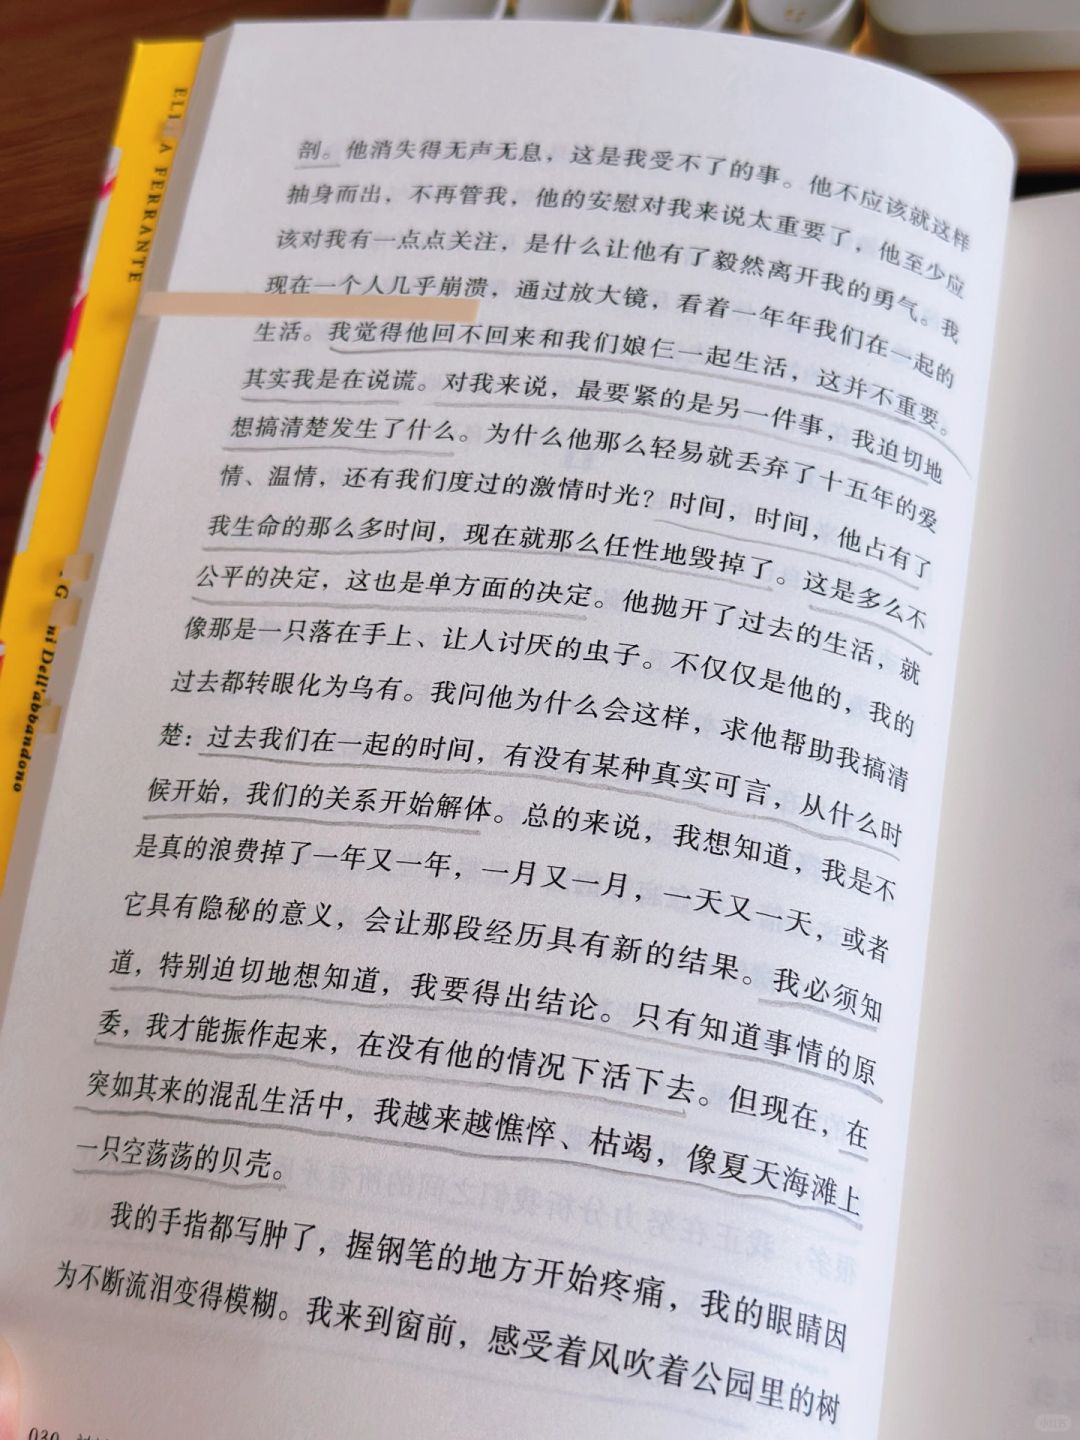 剖。他消失得无声无息，这是我受不了的事。他不应该就这样
抽身而出，不再管我，他的安慰对我来说太重要了，他至少应
该对我有一点点关注，是什么让他有了毅然离开我的勇气。我
现在一个人几乎崩溃，通过放大镜，看着一年年我们在一起的
生活。我觉得他回不回来和我们娘仨一起生活，这并不重要。
其实我是在说谎。对我来说，最要紧的是另一件事，我迫切地
想搞清楚发生了什么。为什么他那么轻易就丢弃了十五年的爱
情、温情，还有我们度过的激情时光？时间，时间，他占有了
我生命的那么多时间，现在就那么任性地毁掉了。这是多么不
公平的决定，这也是单方面的决定。他抛开了过去的生活，就
像那是一只落在手上、让人讨厌的虫子。不仅仅是他的，我的
过去都转眼化为乌有。我问他为什么会这样，求他帮助我搞清
楚：过去我们在一起的时间，有没有某种真实可言，从什么时
候开始，我们的关系开始解体。总的来说，我想知道，我是不
是真的浪费掉了一年又一年，一月又一月，一天又一天，或者
它具有隐秘的意义，会让那段经历具有新的结果。我必须知
道，特别迫切地想知道，我要得出结论。只有知道事情的原
委，我才能振作起来，在没有他的情况下活下去。但现在，在
突如其来的混乱生活中，我越来越憔悴、枯竭，像夏天海滩上
一只空荡荡的贝壳。
我的手指都写肿了，握钢笔的地方开始疼痛，我的眼睛因
为不断流泪变得模糊。我来到窗前，感受着风吹着公园里的树
030
FERRANTE
Dell'abbandono